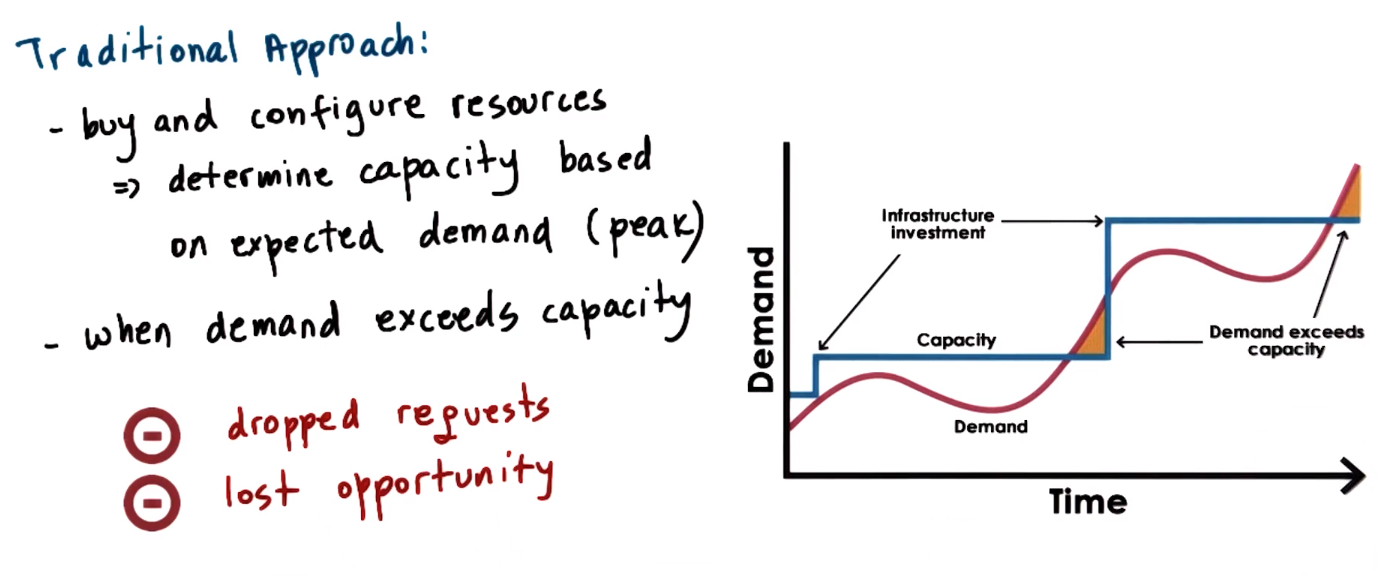 Traditional Approach:
- buy and configure resources
=> determine capacity based
on expected demand (peak)
- when demand exceeds capacity
dropped requests
lost opportunity
Demand
Infrastructure
investment
Capacity
Demand
Demand exceeds
capacity
Time